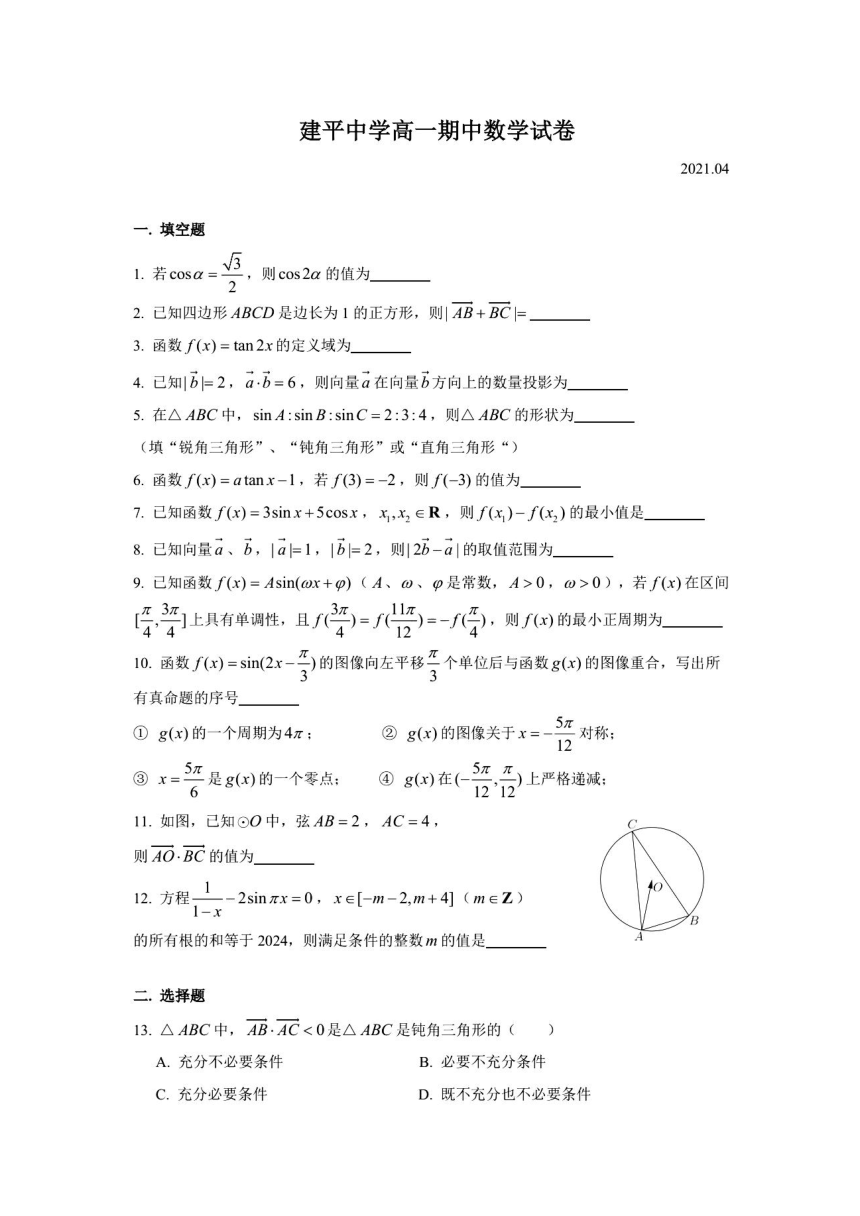 建平中学高一期中数学试卷
2021.04
一. 填空题
1. 若 cos α = √3/2，则 cos 2α 的值为________
2. 已知四边形 ABCD 是边长为 1 的正方形，则| AB→ + BC→ |= ________
3. 函数 f(x) = tan 2x 的定义域为________
4. 已知| b→ |= 2，a→ · b→ = 6，则向量 a→ 在向量 b→ 方向上的数量投影为________
5. 在△ ABC 中，sin A : sin B : sin C = 2 : 3 : 4，则△ ABC 的形状为________
（填“锐角三角形”、“钝角三角形”或“直角三角形“）
6. 函数 f(x) = a tan x − 1，若 f(3) = −2，则 f(−3) 的值为________
7. 已知函数 f(x) = 3sin x + 5cos x，x₁, x₂ ∈ R，则 f(x₁) − f(x₂) 的最小值是________
8. 已知向量 a→、b→，| a→ |= 1，| b→ |= 2，则| 2b→ − a→ | 的取值范围为________
9. 已知函数 f(x) = A sin(ωx + φ)（ A、ω、φ 是常数，A > 0，ω > 0 ），若 f(x) 在区间
[π/4, 3π/4] 上具有单调性，且 f(3π/4) = f(11π/12) = −f(π/4)，则 f(x) 的最小正周期为________
10. 函数 f(x) = sin(2x − π/3) 的图像向左平移 π/3 个单位后与函数 g(x) 的图像重合，写出所
有真命题的序号________
① g(x) 的一个周期为 4π； ② g(x) 的图像关于 x = −5π/12 对称；
③ x = 5π/6 是 g(x) 的一个零点； ④ g(x) 在 (−5π/12, π/12) 上严格递减；
11. 如图，已知⊙O 中，弦 AB = 2，AC = 4，
则 AO→ · BC→ 的值为________
C
O
B
A
12. 方程 1/(1−x) − 2sin πx = 0，x ∈ [−m − 2, m + 4]（ m ∈ Z ）
的所有根的和等于 2024，则满足条件的整数 m 的值是________
二. 选择题
13. △ ABC 中，AB→ · AC→ < 0 是△ ABC 是钝角三角形的（ ）
A. 充分不必要条件 B. 必要不充分条件
C. 充分必要条件 D. 既不充分也不必要条件